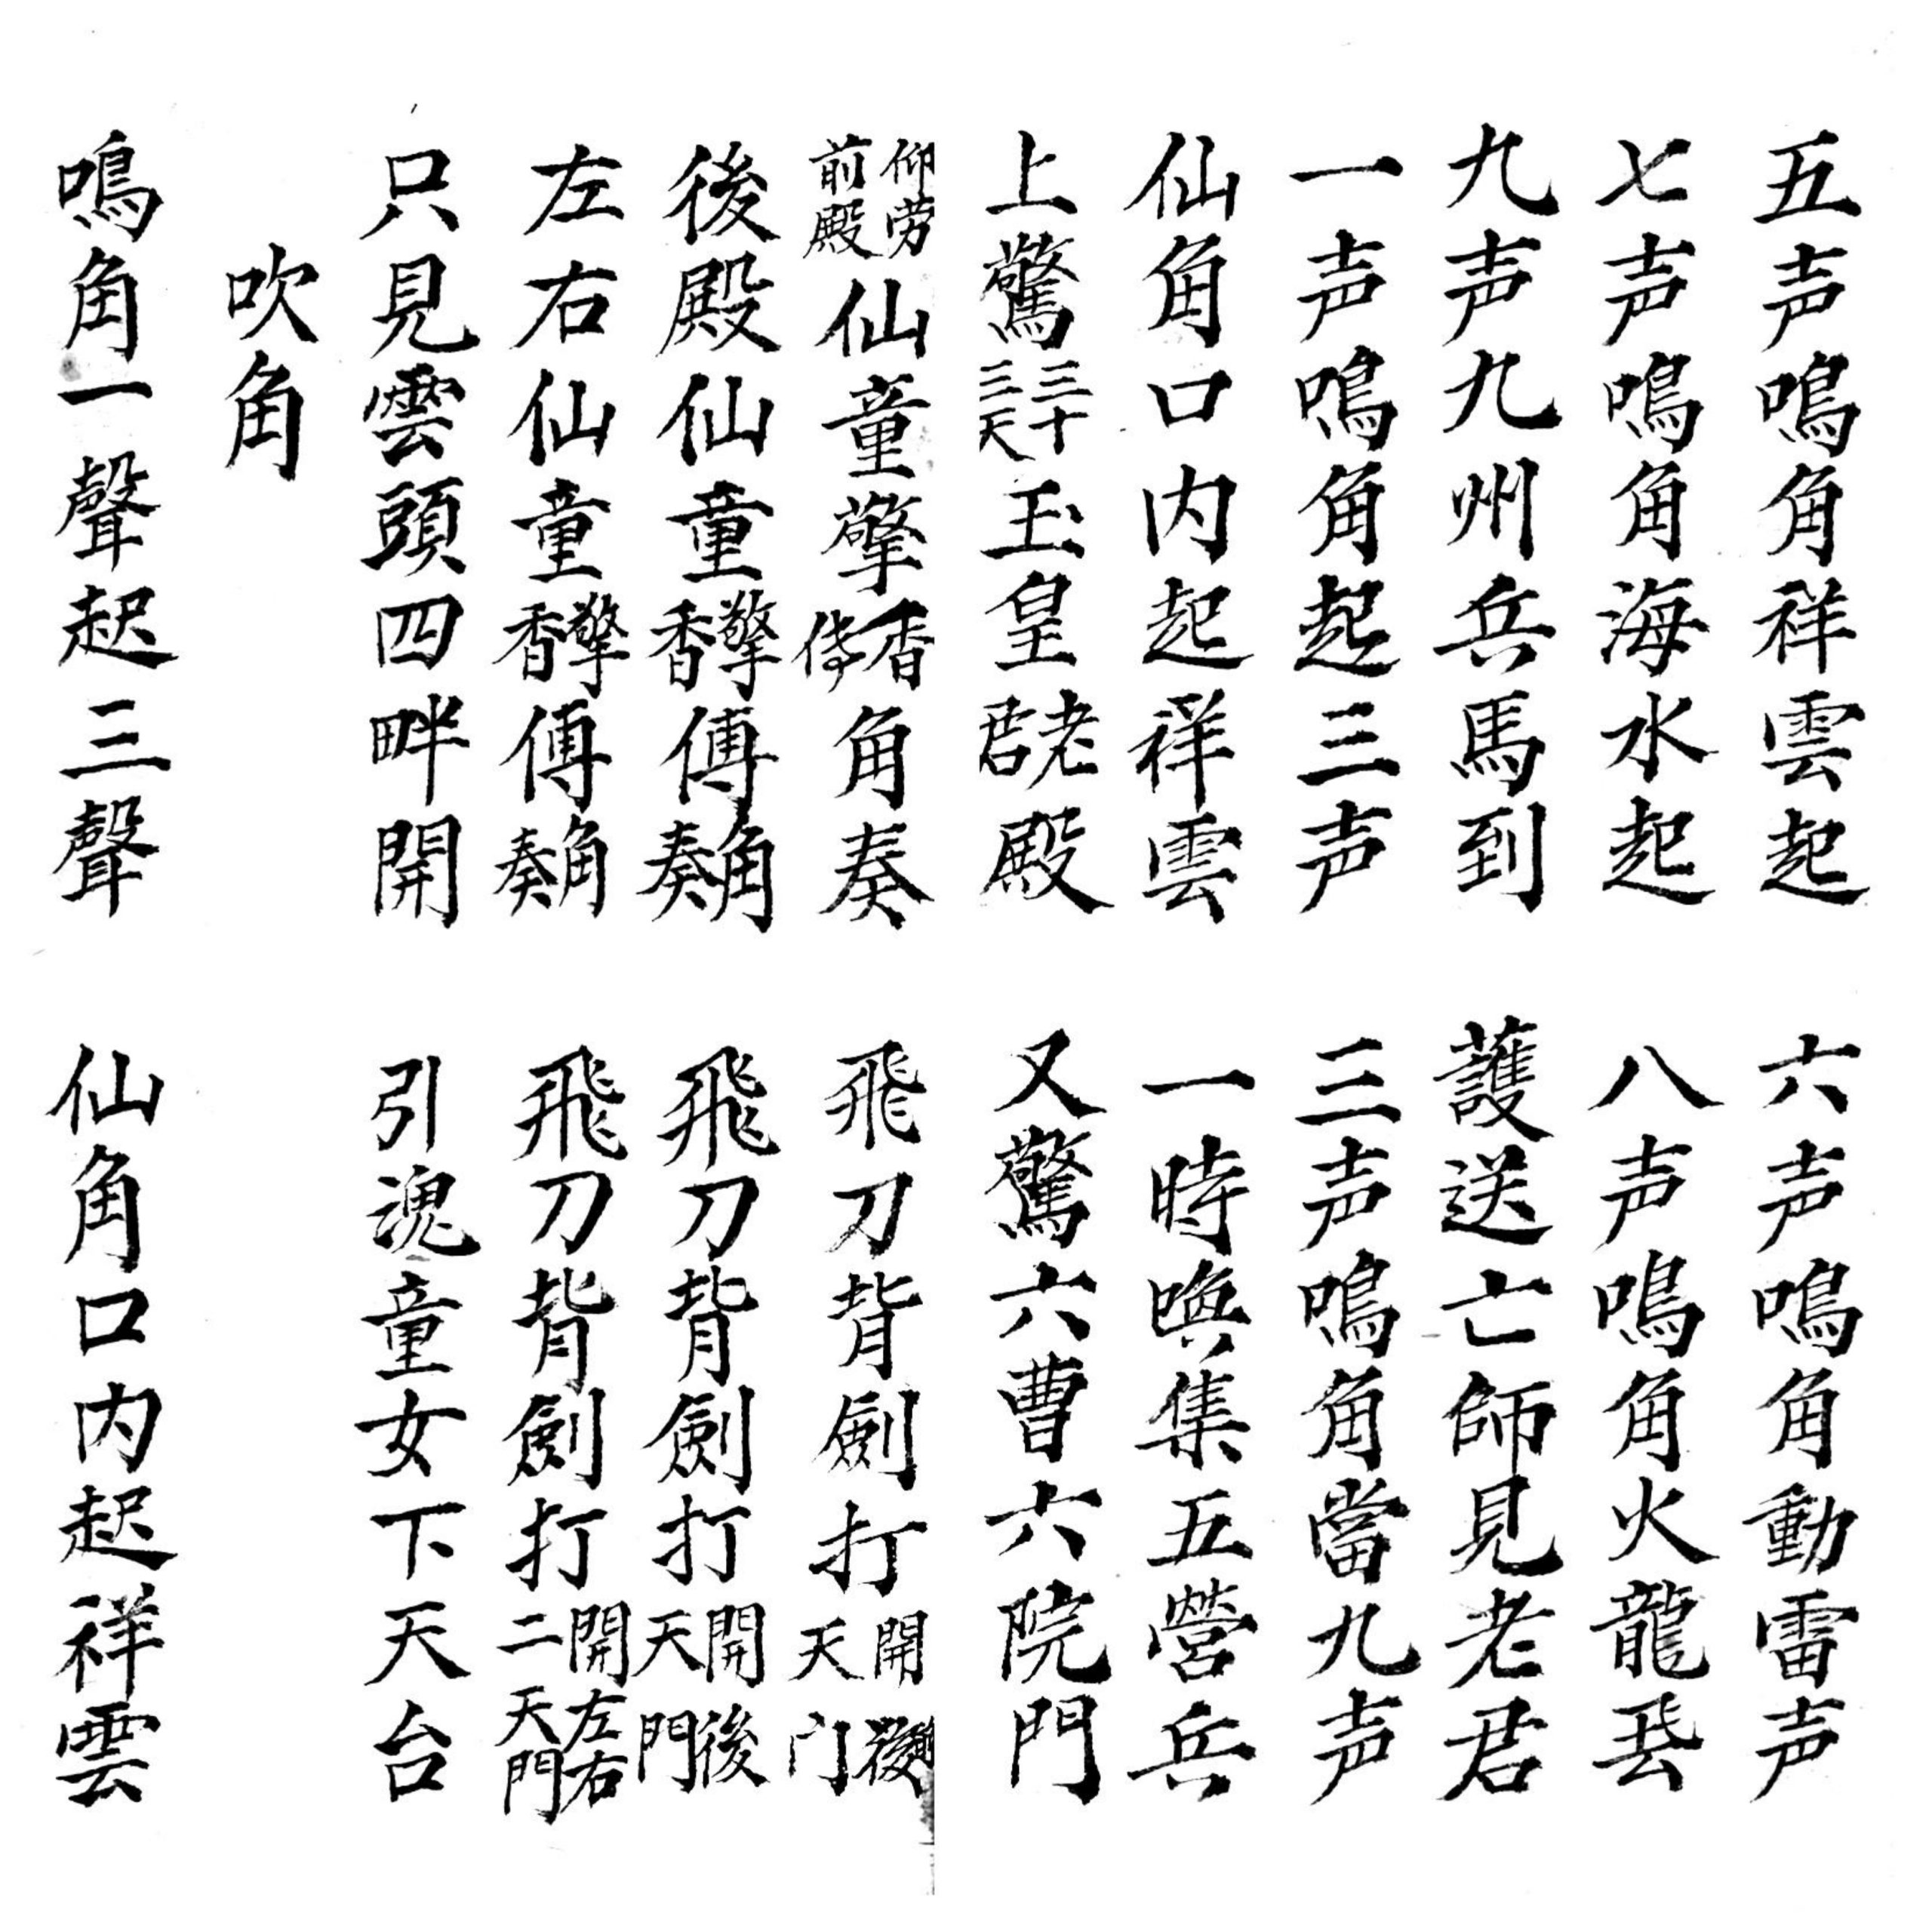 五声鳴角祥雲起　六声鳴角動雷声
七声鳴角海水起　八声鳴角火龍
九声九州兵馬到　護送亡師見老君
一声鳴角起三声　三声鳴角當九声
仙角口内起祥雲　一時喚集五營兵
上驚三十三天玉皇老君殿　又驚六曹六院門
仰劳前殿仙童擎香傅角奏　飛刀背劍打開天门
後殿仙童擎香傅角奏　飛刀背劍打開後天門
左右仙童擎香傅角奏　飛刀背劍打開左右二天門
只見雲頭四畔開　引魂童女下天台
吹角
鳴角一聲起三聲　仙角口内起祥雲